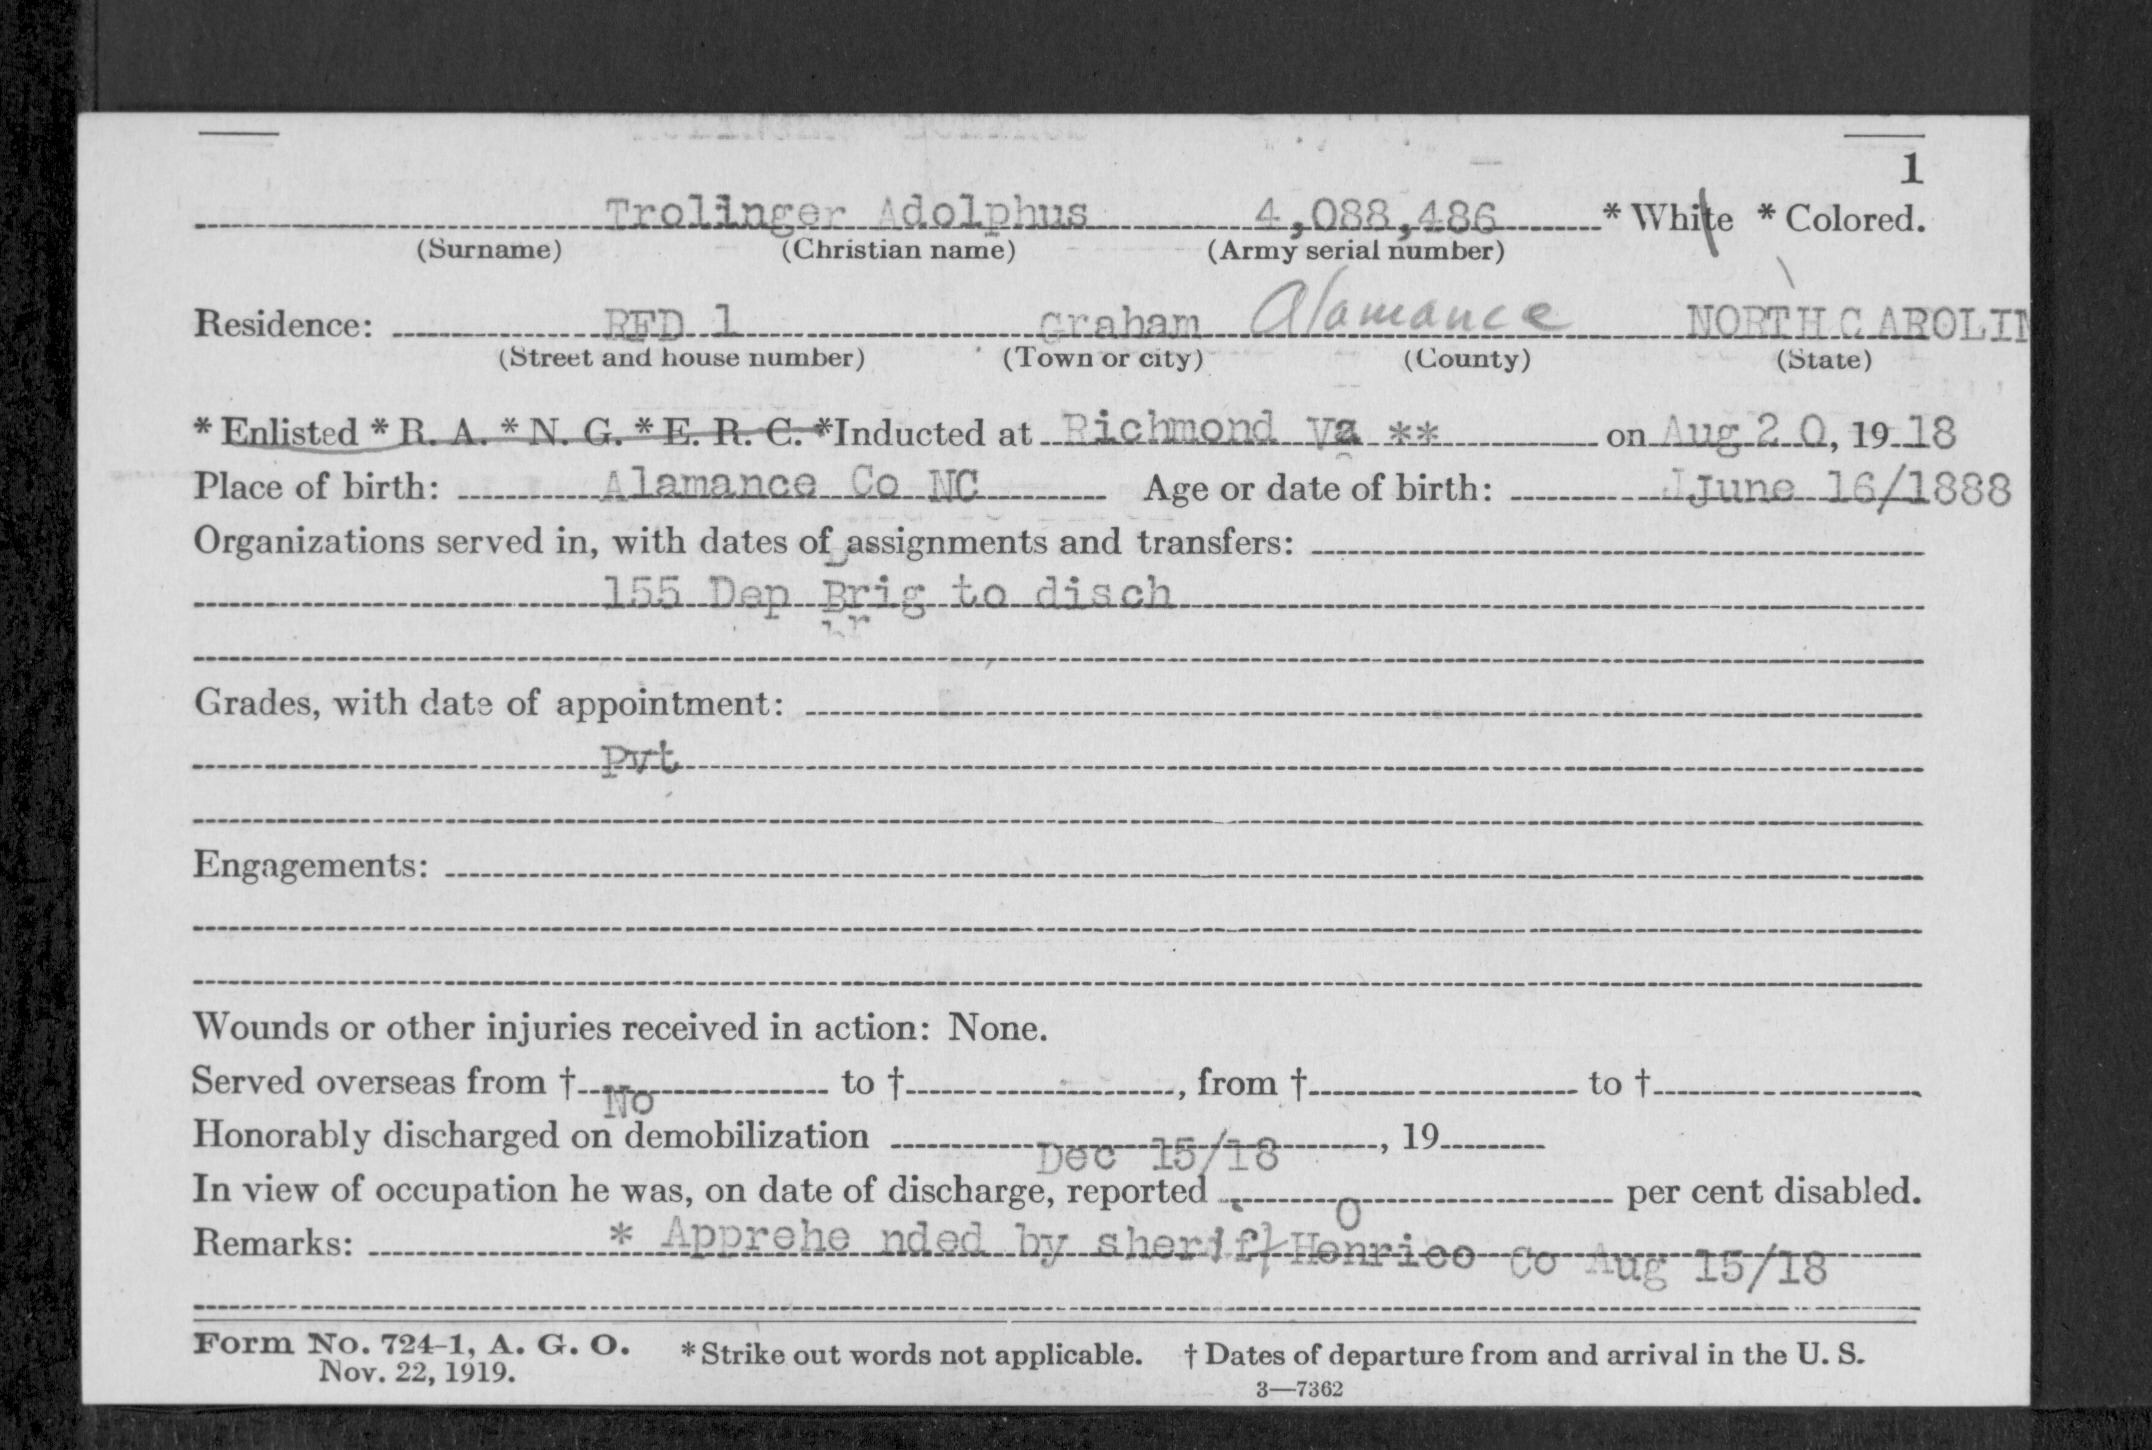 1
Trolinger Adolphus 4,088,486 * White * Colored.
(Surname) (Christian name) (Army serial number)
Residence: RFD 1 Graham Alamance NORTH CAROLIN
(Street and house number) (Town or city) (County) (State)
* Enlisted * R. A. * N. G. * E. R. C. *Inducted at Richmond Va ** on Aug 20, 1918
Place of birth: Alamance Co NC Age or date of birth: JJune 16/1888
Organizations served in, with dates of assignments and transfers:
155 Dep Brig to disch
Grades, with date of appointment:
Pvt
Engagements:
Wounds or other injuries received in action: None.
Served overseas from † No to †, from † to †
Honorably discharged on demobilization Dec 15/18, 19
In view of occupation he was, on date of discharge, reported 0 per cent disabled.
Remarks: * Apprehe nded by sheriff Henrico Co Aug 15/18
Form No. 724-1, A. G. O. * Strike out words not applicable. † Dates of departure from and arrival in the U. S.
Nov. 22, 1919.
3—7362